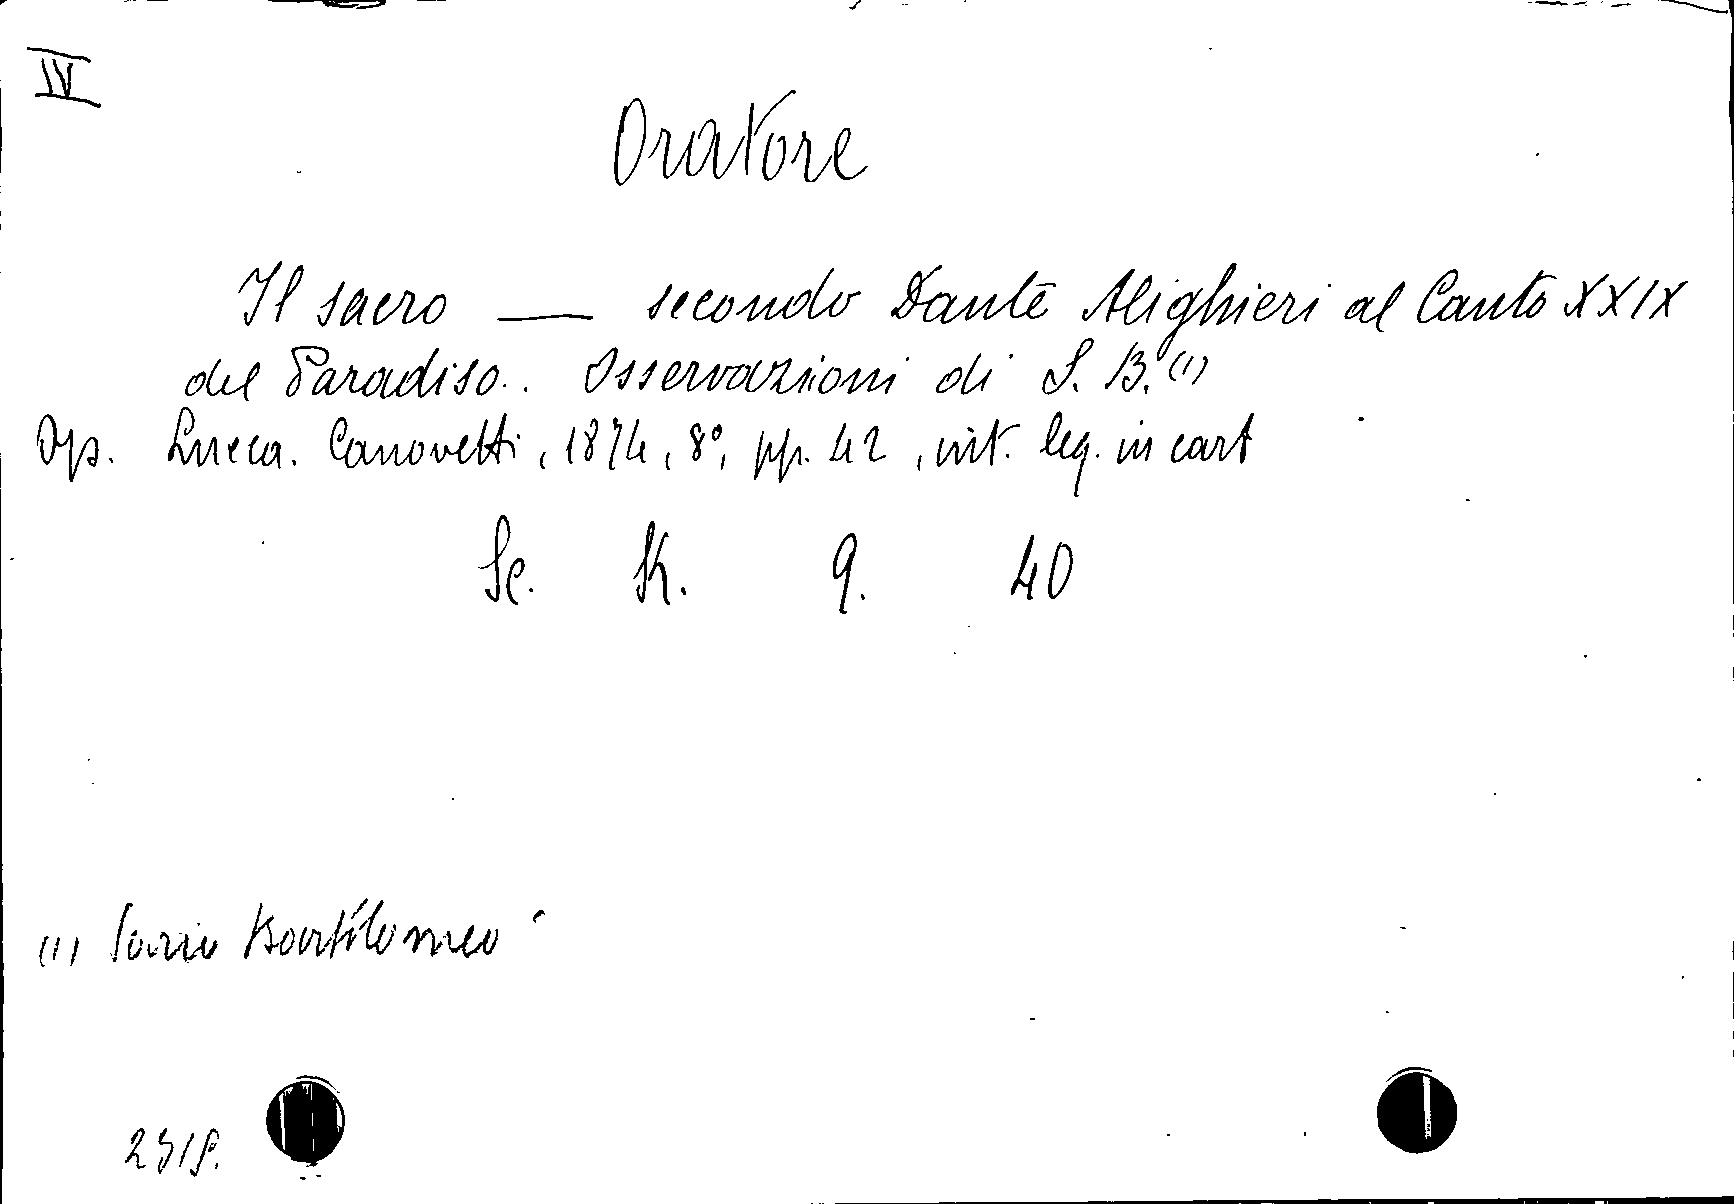 IV
Oratore
Il sacro — secondo Dante Alighieri al Canto XXIX
del Paradiso.. Osservazioni di S. B. (1)
Op. Lucca. Canovetti, 1874, 8°, pp. 42, int. leg. in cart
Sc. K. 9. 40
(1) Sorio Bartolomeo